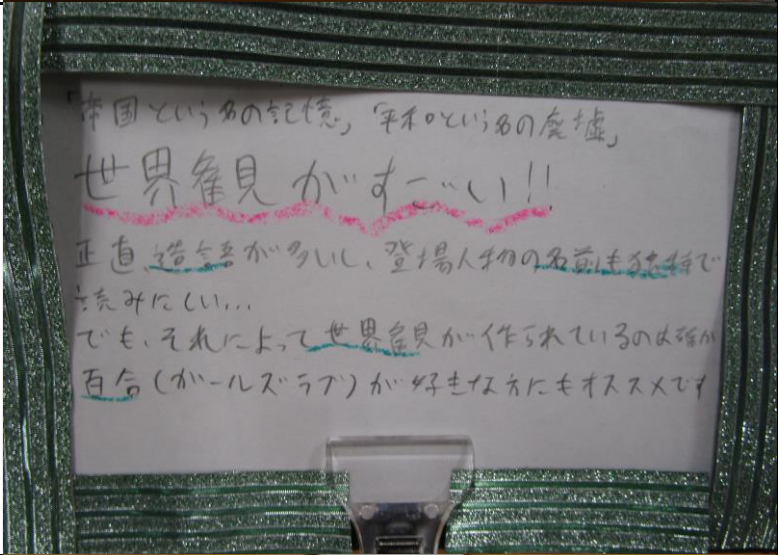 「帝国という名の記憶」「平和という名の廃墟」
世界観がすご〜い!!
正直、造語が多いし、登場人物の名前も独特で
読みにくい...
でも、それによって世界観が作られているのは確か
百合(ガールズラブ)が好きな方にもオススメです